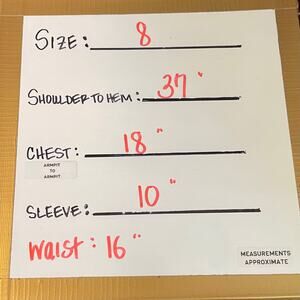 SIZE: 8
SHOULDER TO HEM: 37"
CHEST: 18"
ARMPIT
TO
ARMPIT
SLEEVE: 10"
waist: 16"
MEASUREMENTS
APPROXIMATE